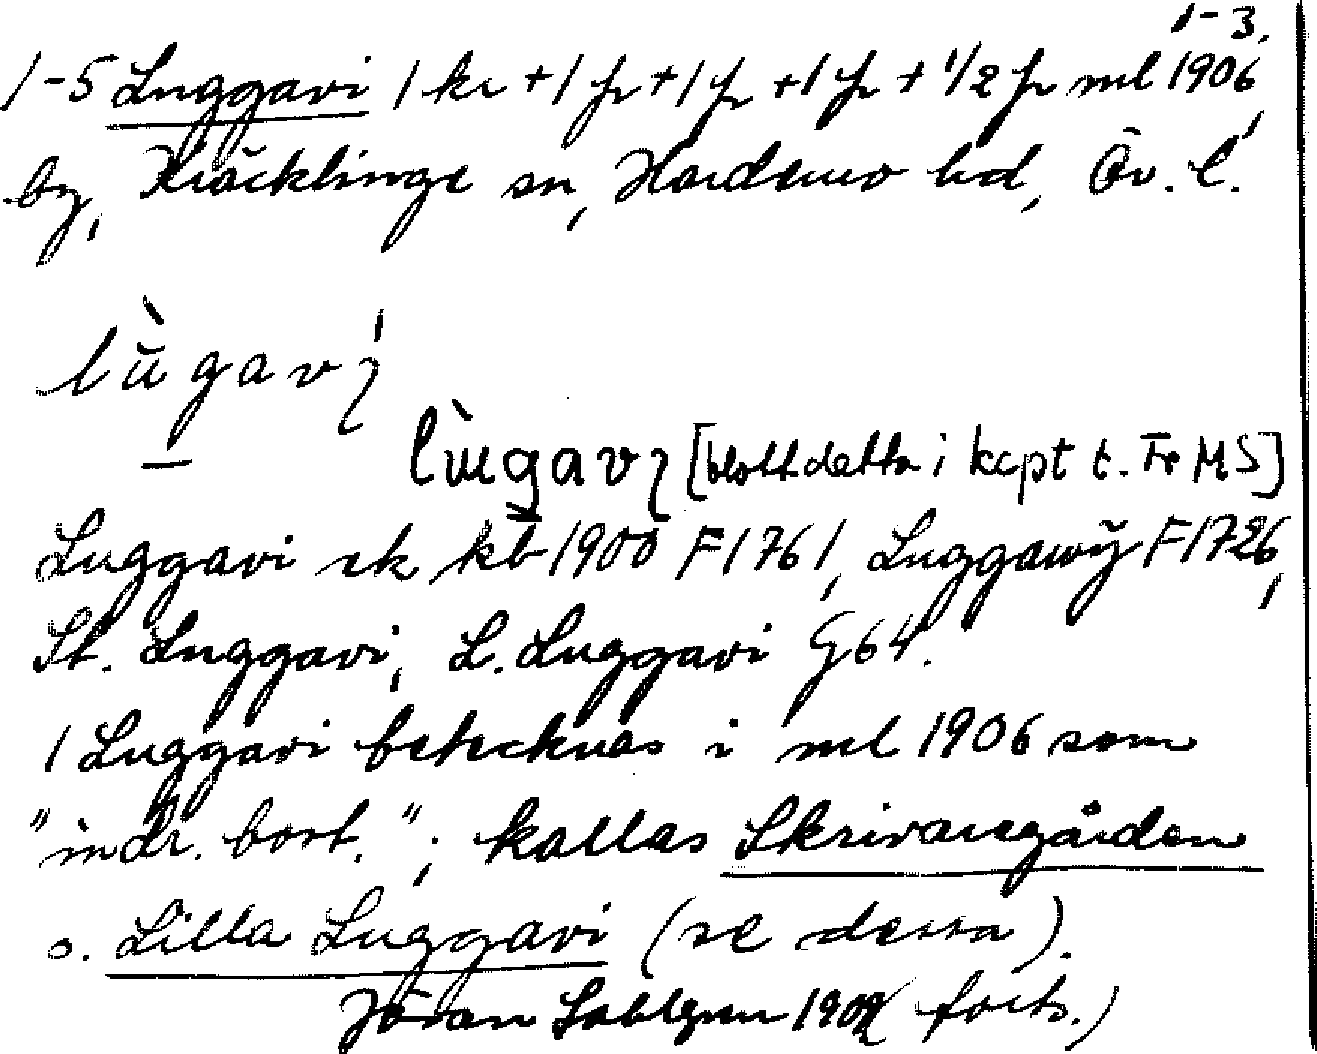 1-3.
1-5 Luggavi 1 kr + 1 fr + 1 fr + 1 fr + 1/2 fr ml 1906,
by, Kräcklinge sn, Hardemo hd, Ör. l.
lùgavi
— lùgavi [blott detta i kcpt t. Fr MS]
Luggavi sk kb 1900 F1761, Luggawÿ F1726,
St. Luggavi, L. Luggavi G64.
1 Luggavi betecknas i ml 1906 som
"indr. bost."; kallas Skrivaregården
o. Lilla Luggavi (se dessa).
Jöran Sahlgren (forts.)